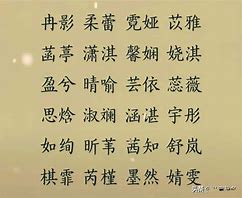 冉影 柔蕾 霓娅 苡雅
菡葶 潇淇 馨娴 娆淇
盈兮 晴喻 芸依 蕊薇
思焓 淑斓 涵湛 宇彤
如绚 昕苇 茜知 舒岚
棋霏 芮槿 墨然 婧雯